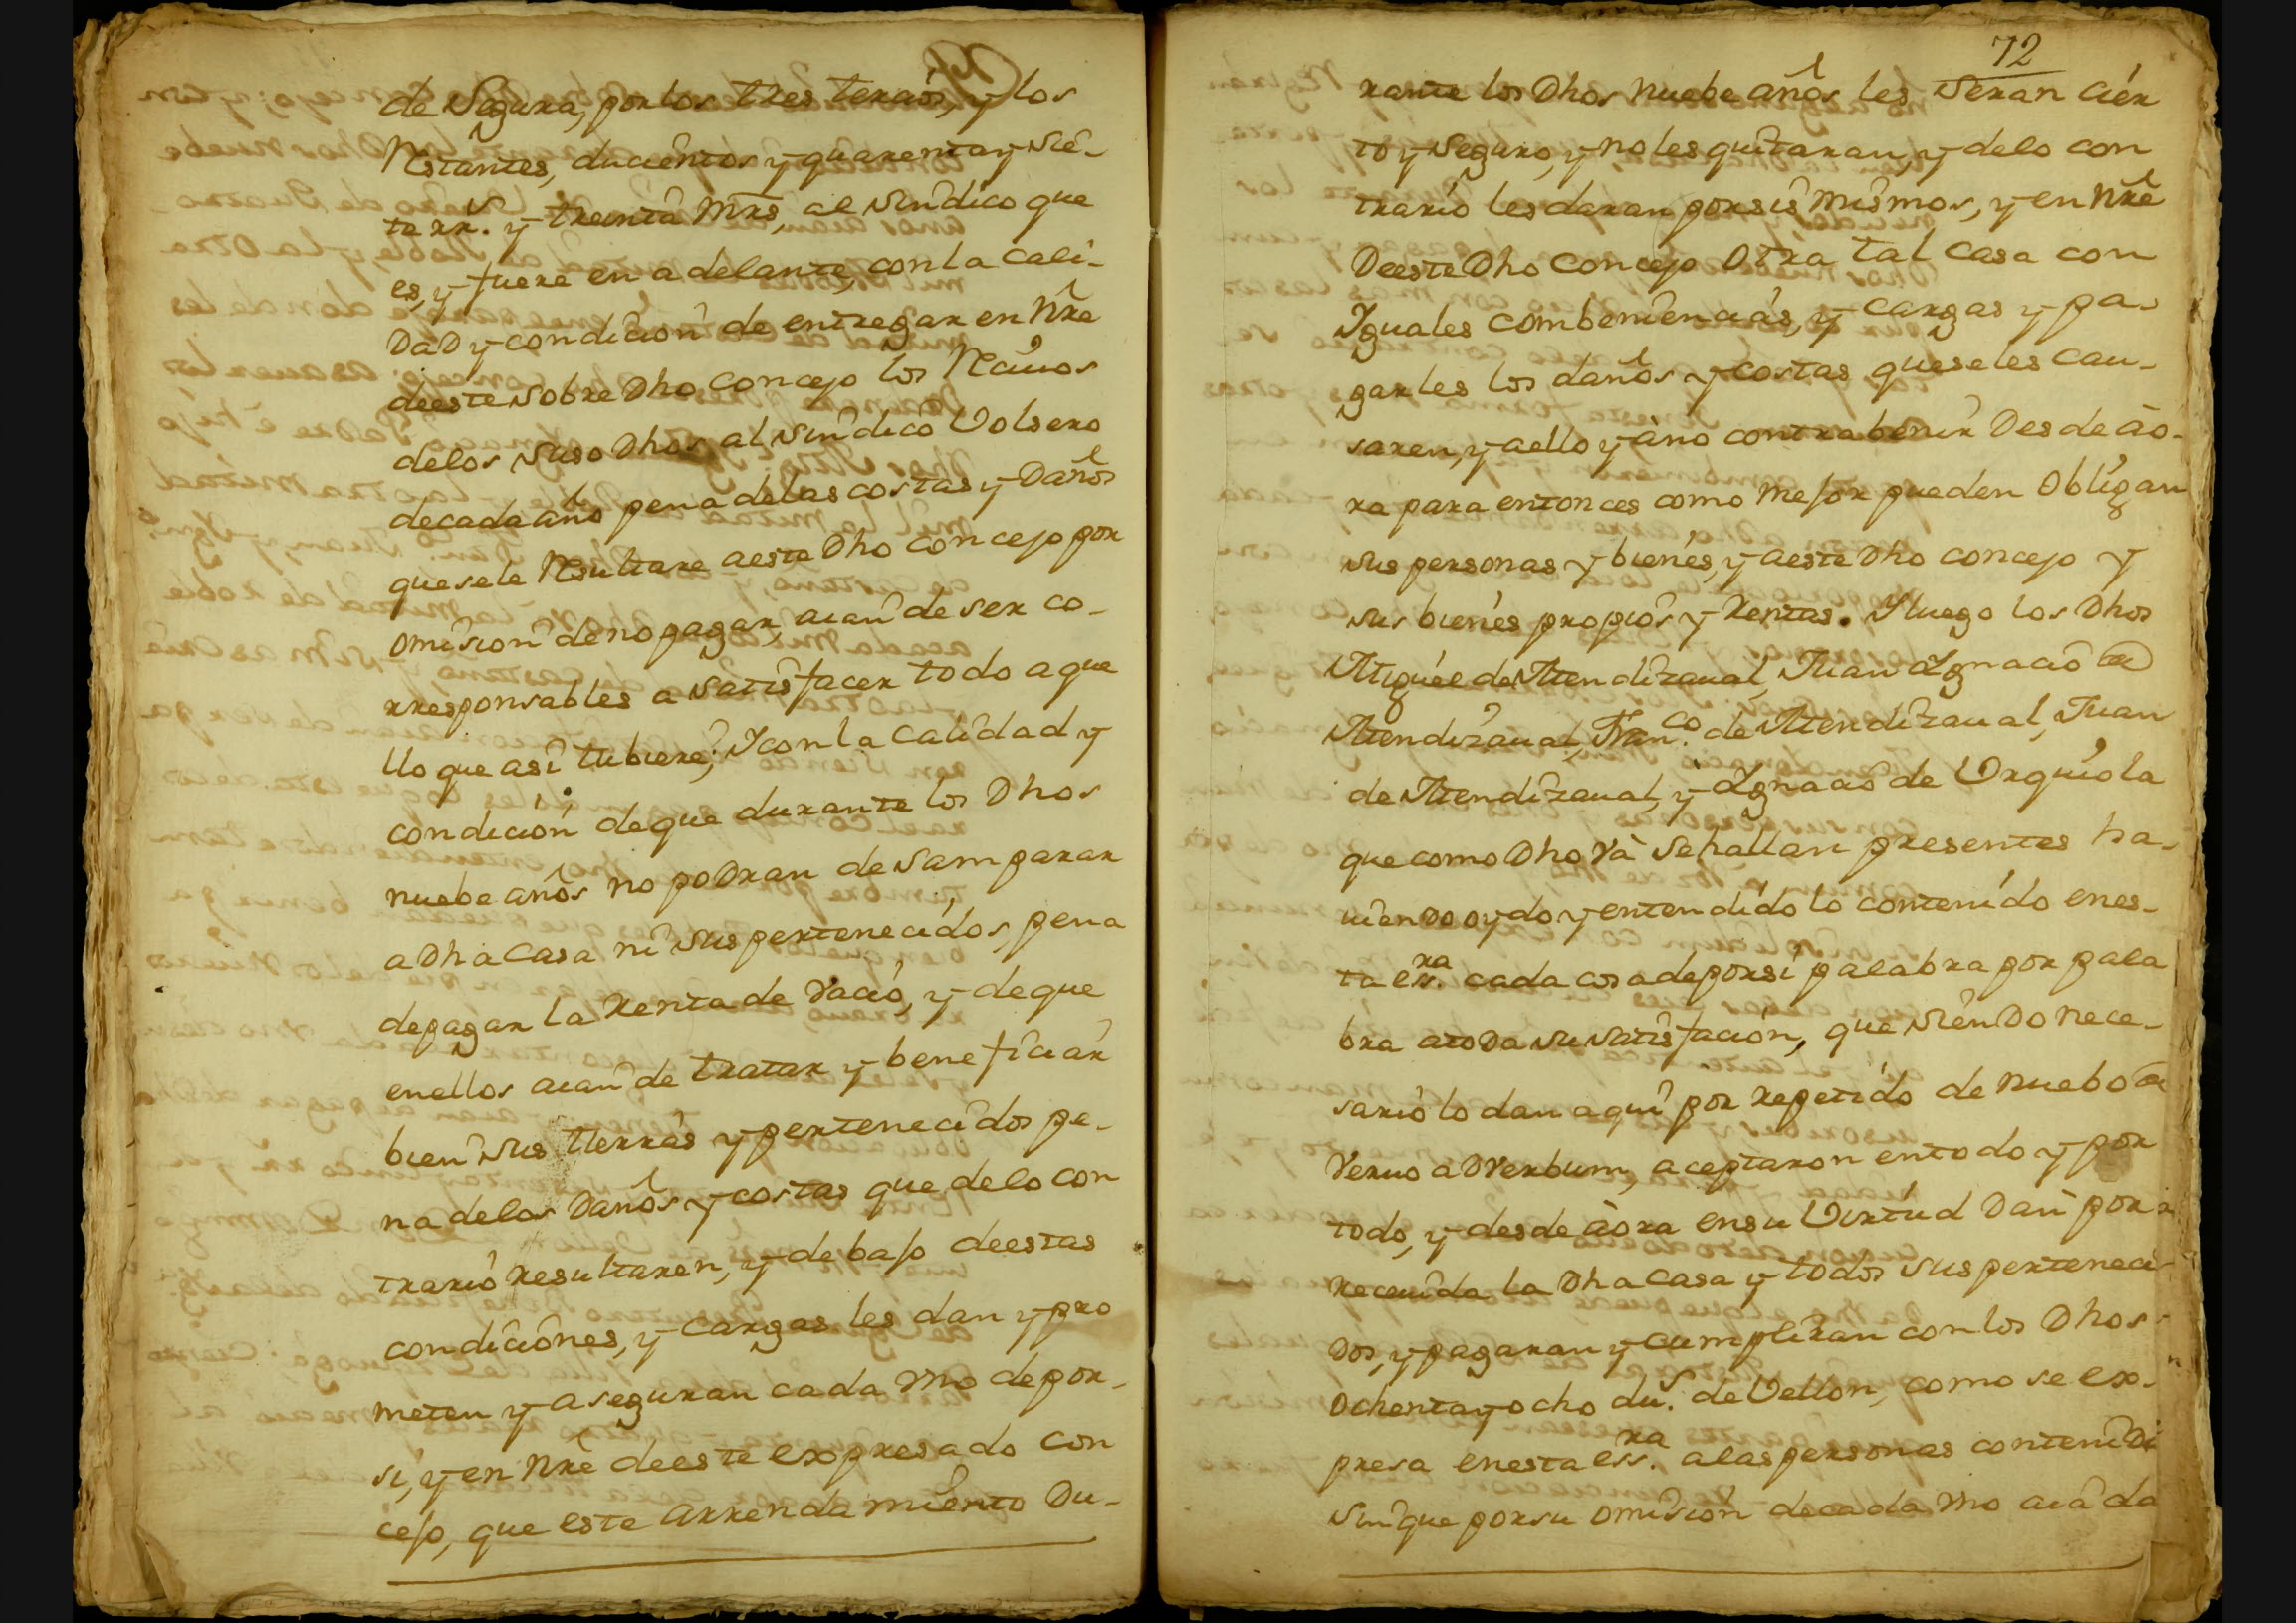 de Segura, por los tres tercios, y los
Restantes, ducientos y quarenta y sie-
te rr.s y treinta mrs, al sindico que
es, y fuere en adelante, con la cali-
dad y condicion de entregar en nre
de este sobre dho concejo los Recivos
delos suso dhos al sindico volsero
de cada año pena de las costas y daños
que se le Resultare a este dho concejo por
omision de no pagar, avian de ser co-
rresponsables a satisfacer todo aque
llo que asi tubiere; Y con la calidad y
condicion de que durante los dhos
nuebe años no podran desamparar
a dha casa ni sus pertenecidos, pena
de pagar la renta de vacio, y de que
en ellos avian de tratar y beneficiar
bien sus tierras y pertenecidos pe-
na delos daños y costas que delo con
trario resultaren, y debajo de estas
condiciones, y cargas les dan y pro
meten y aseguran cada uno de por
si, y en nre de este expresado con
cejo, que este arrendamiento du-
72
rante los dhos nuebe años les seran cier
to y seguro, y no les quitaran, y delo con
trario les daran por sis mismos, y en nre
de este dho concejo otra tal casa con
Iguales combeniencias, y cargas y pa-
garles los daños y costas que se les cau-
saren, y a ello y a no contrabenir desde ao-
ra para entonces como mejor pueden obligan
sus personas y bienes, y a este dho concejo y
sus bienes propios y rentas. Y luego los dhos
Miguel de Mendizaual, Juan Ignacio de
Mendizaual, Fran.co de Mendizaual, Juan
de Mendizaual, y Ignacio de Urquiola
que como dho va se hallan presentes ha-
viendo oydo y entendido lo contenido en es-
ta ess.ra cada cosa de por si palabra por pala
bra a toda su satisfacion, que siendo nece-
sario lo dan aqui por repetido de nuebo de
Vervo ad Verbum, aceptaron en todo y por
todo, y desde aora en su virtud dan por
recevida la dha casa y todos sus perteneci-
dos, y pagaran y cumpliran con los dhos
ochenta y ocho du.s de vellon, como se ex-
presa en esta ess.ra a las personas contenidas
sin que por su omision de cada uno aia da